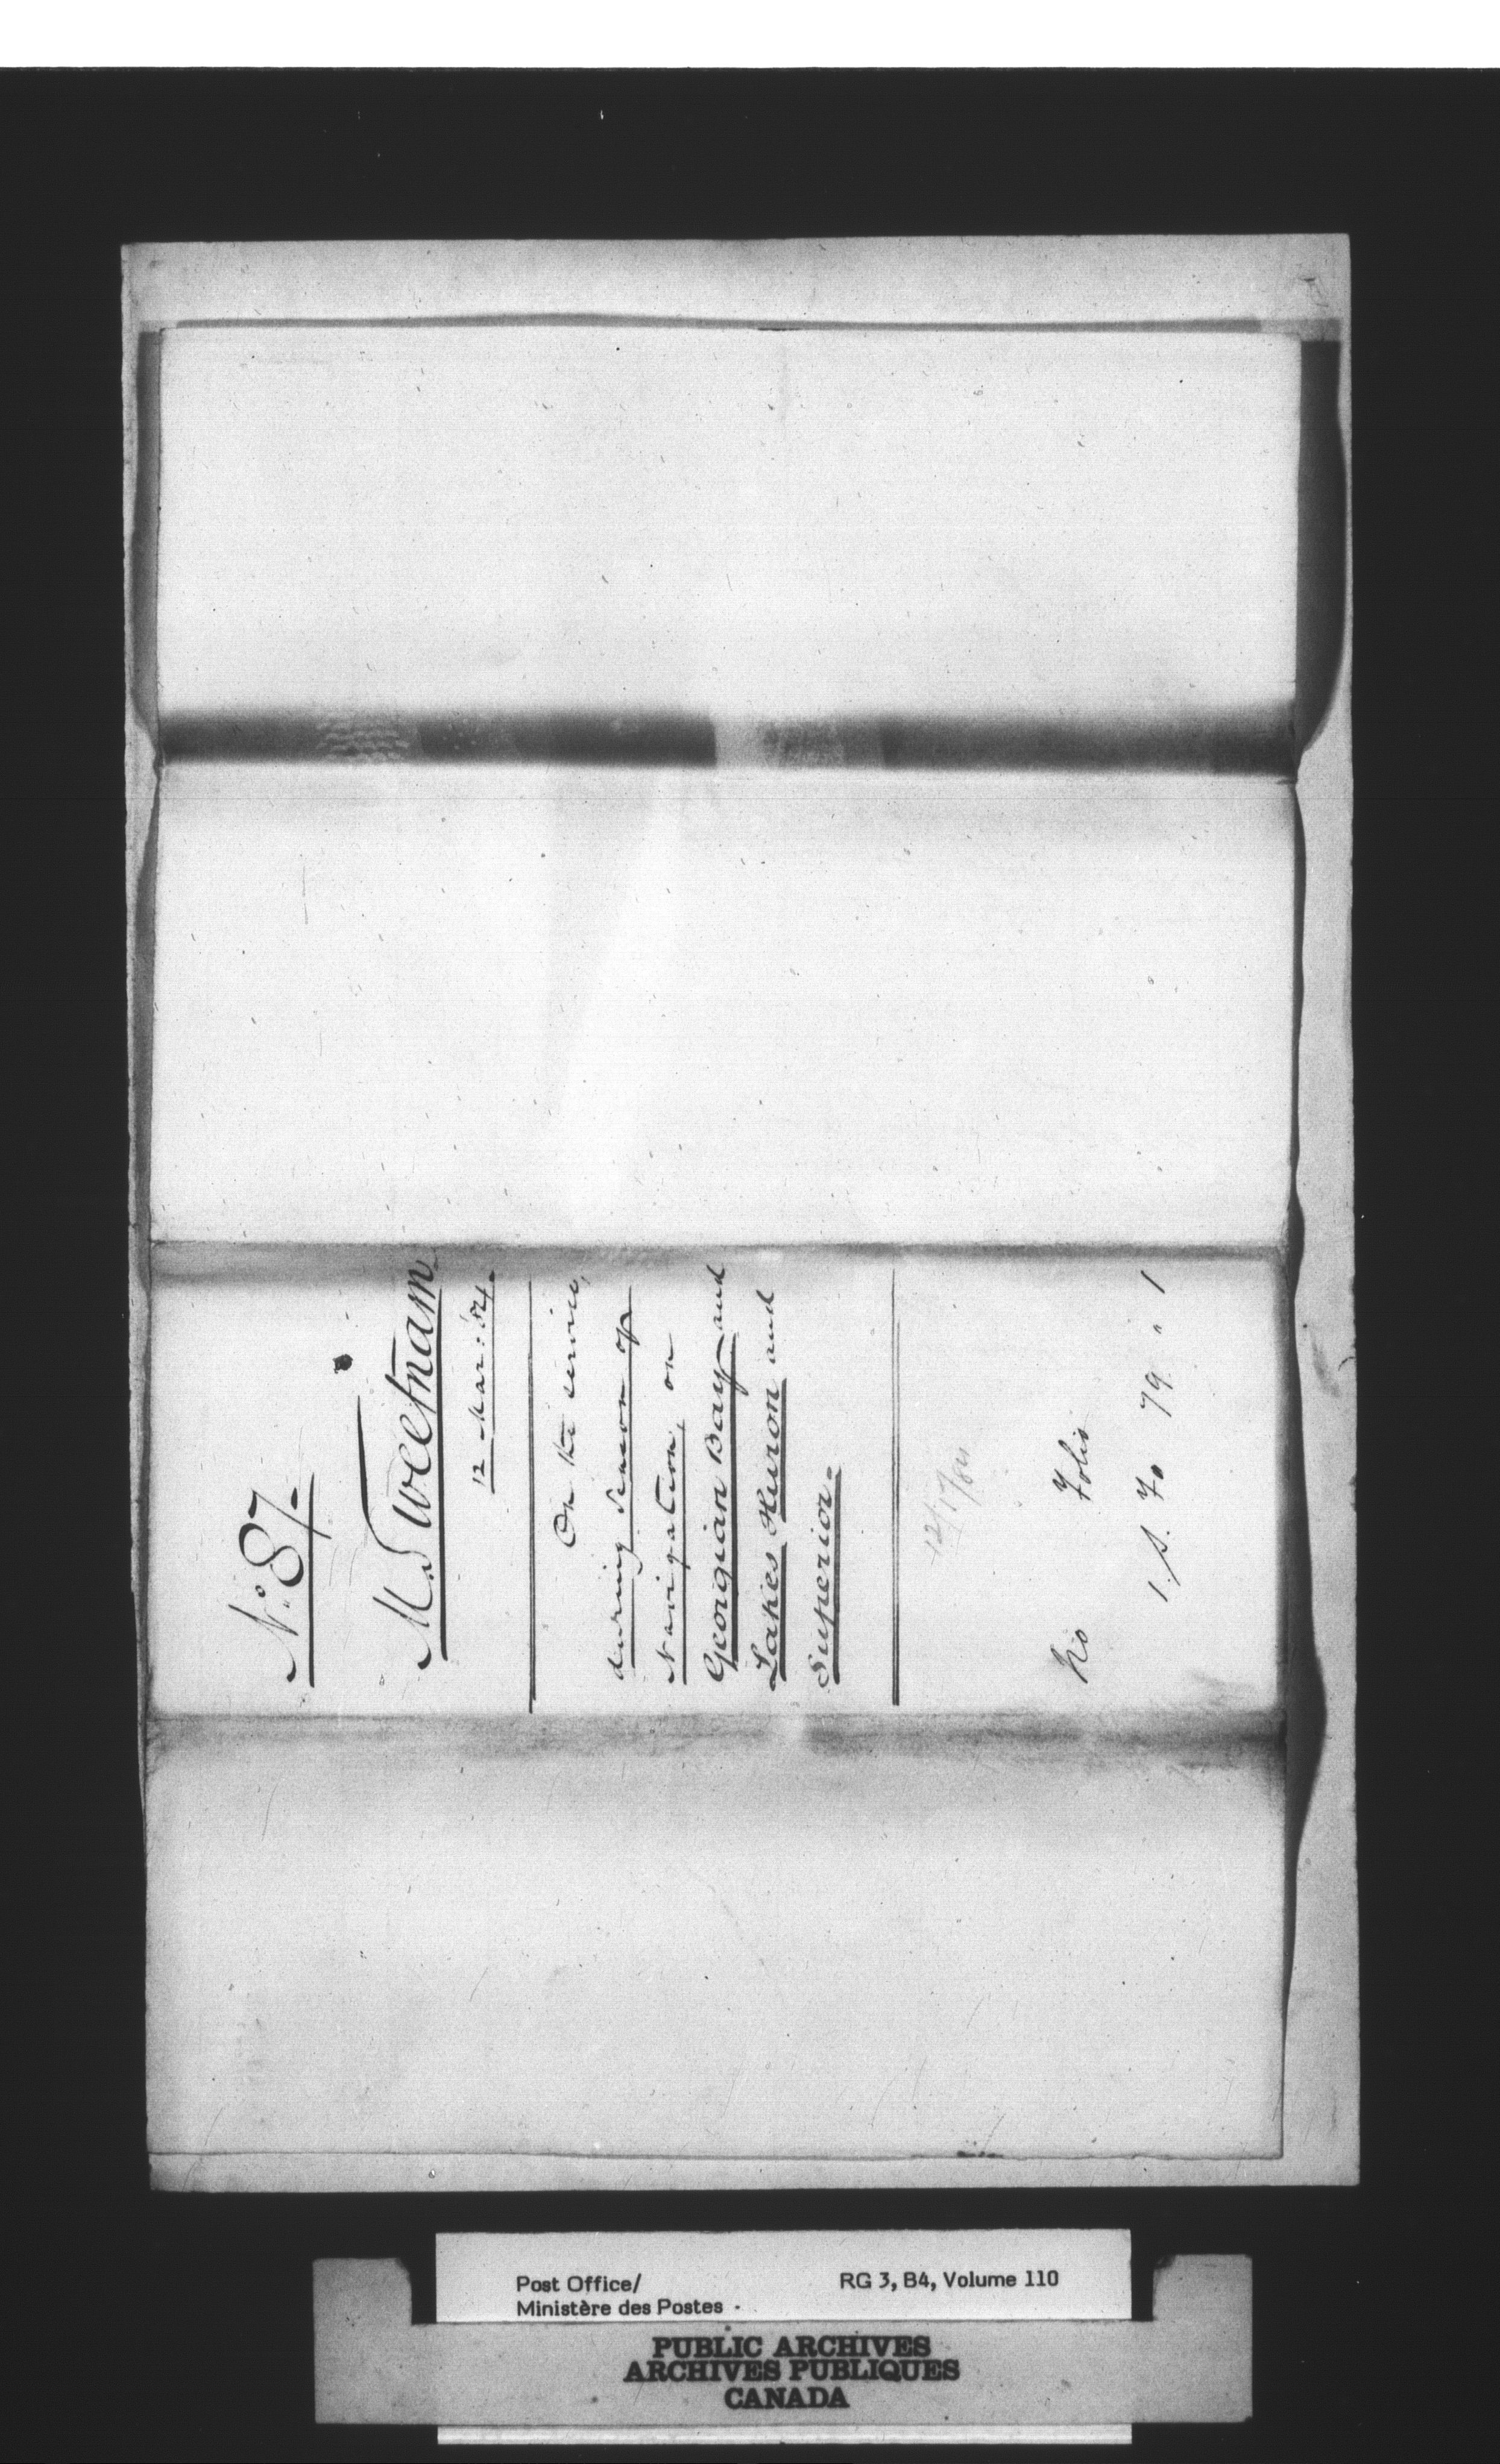 No. 87.
M. Sweetnam
12 Mar: 84.
On the service,
during Season of
Navigation, on
Georgian Bay and
Lakes Huron and
Superior.
No Folio
1. S. Fo 79 " 1
Post Office/
Ministère des Postes
RG 3, B4, Volume 110
PUBLIC ARCHIVES
ARCHIVES PUBLIQUES
CANADA